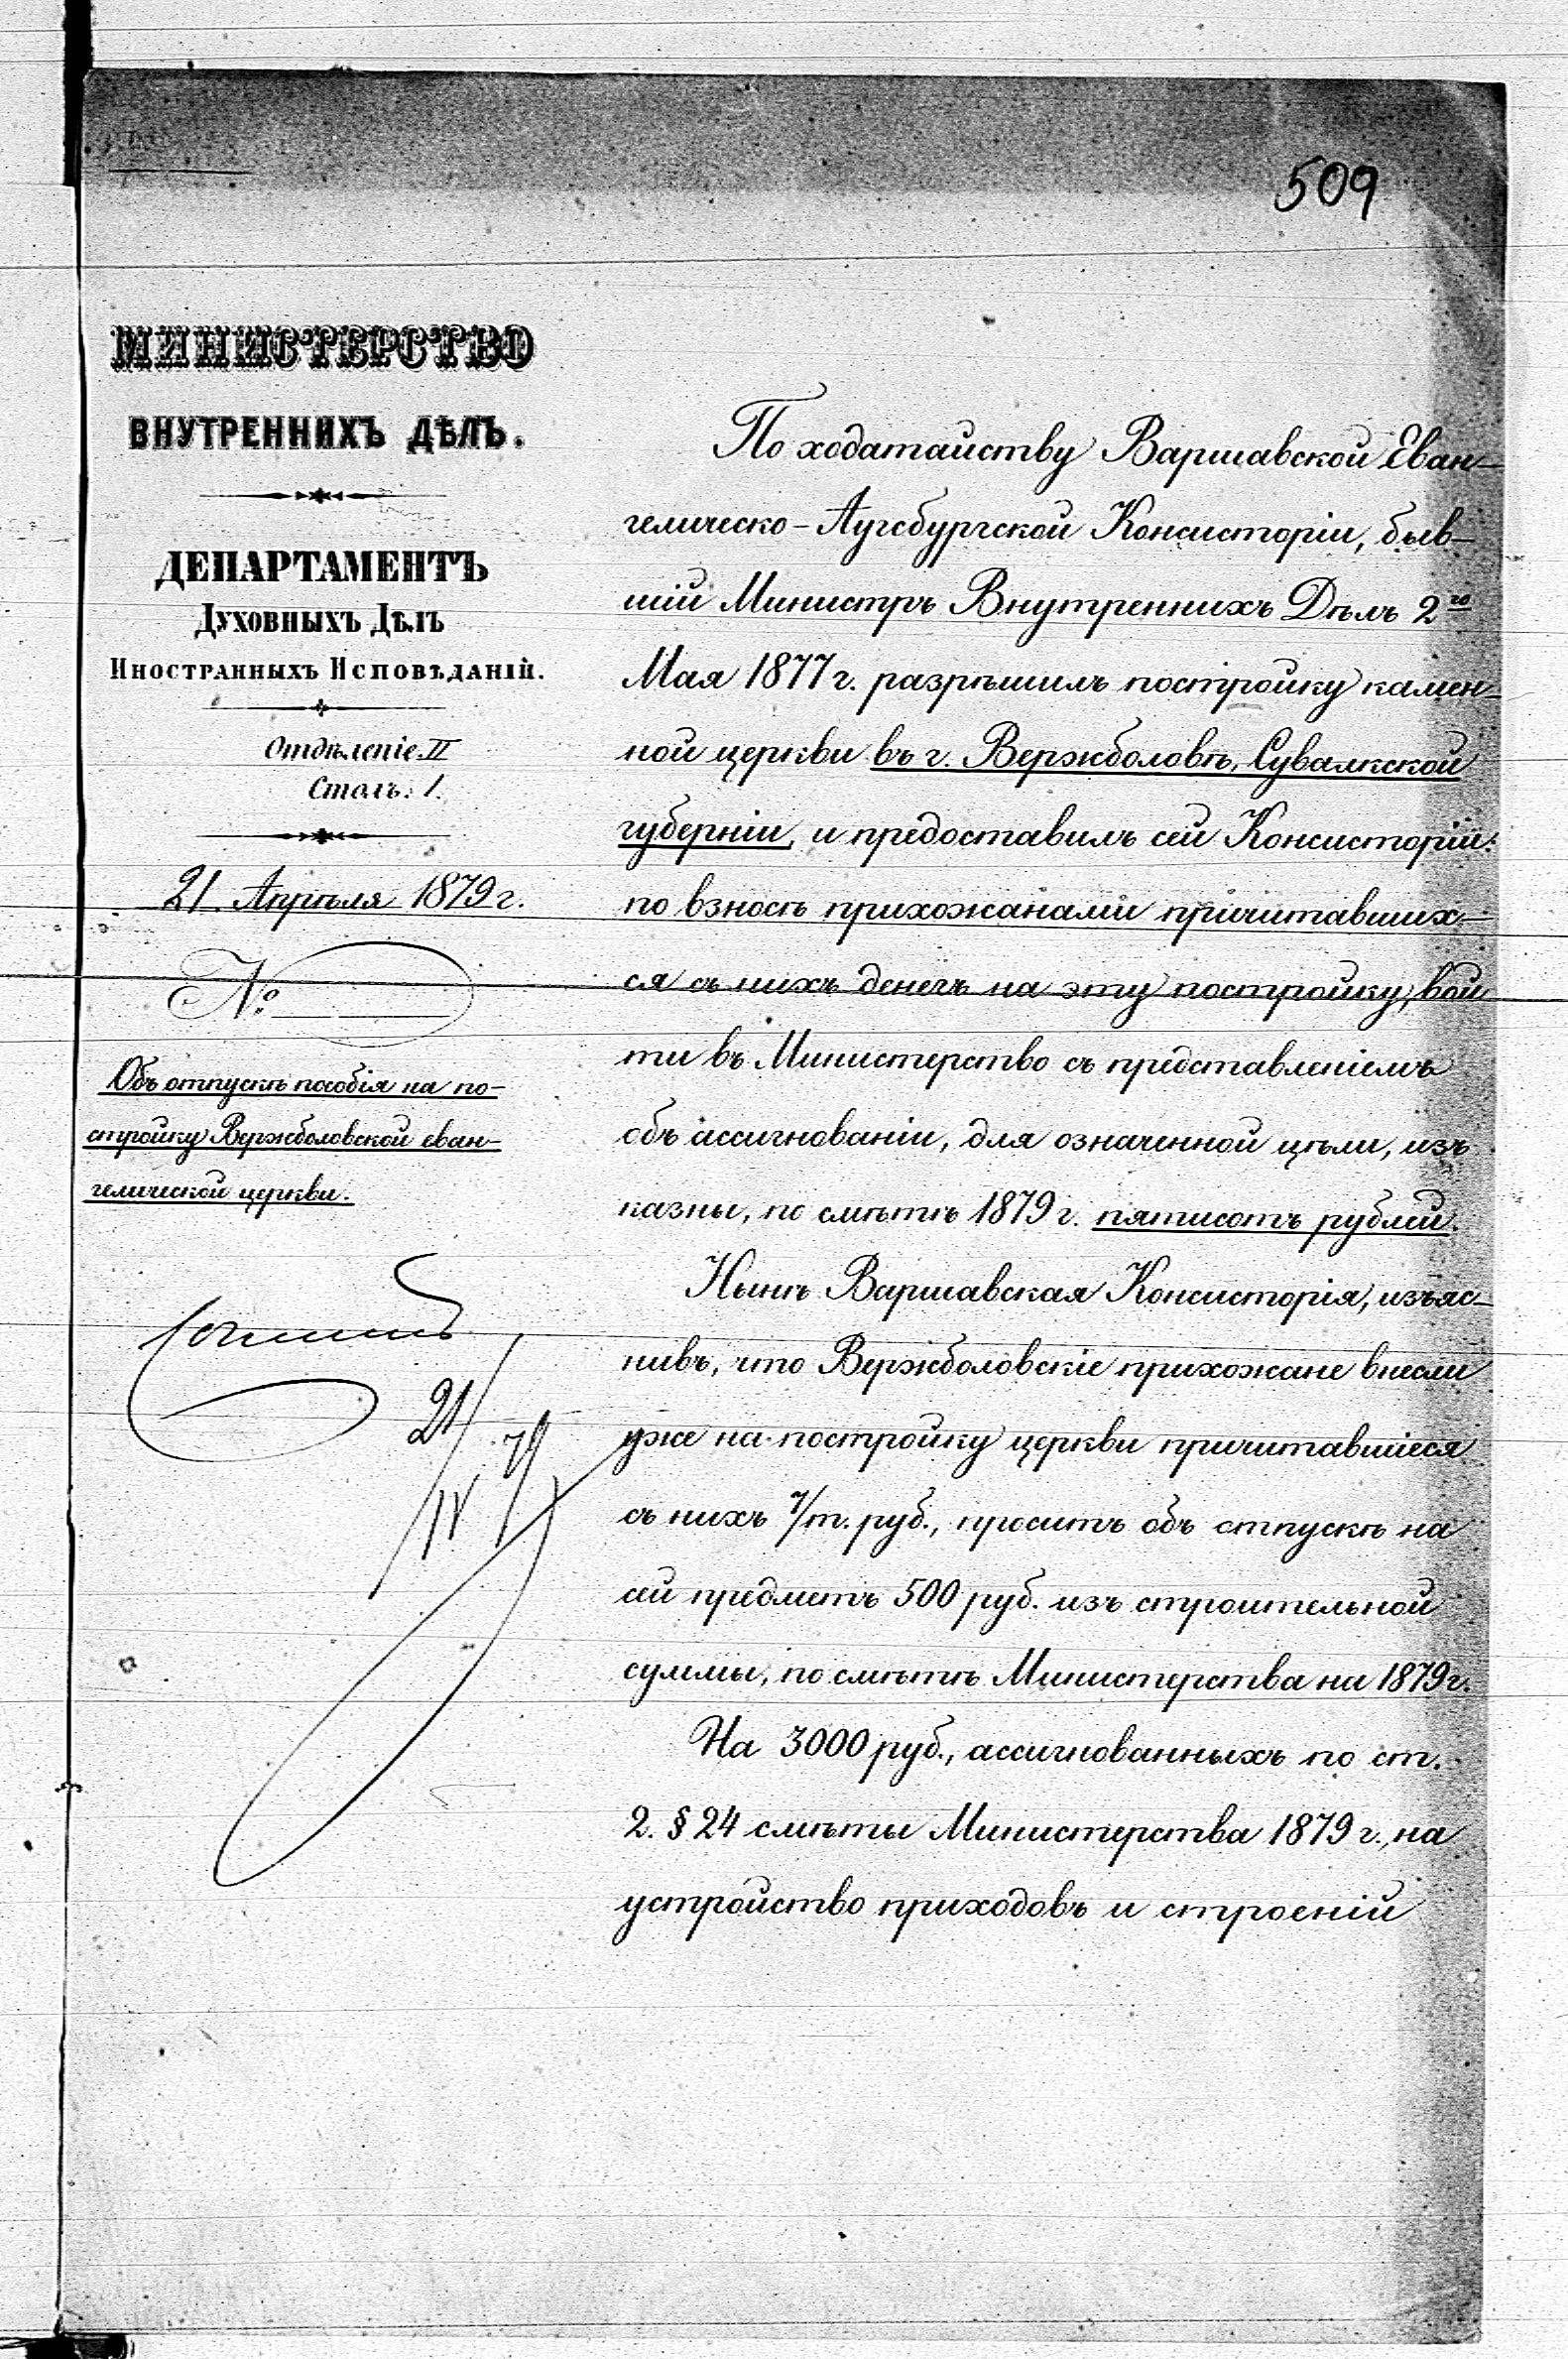 509
МИНИСТЕРСТВО
ВНУТРЕННИХЪ ДѢЛЪ.
ДЕПАРТАМЕНТЪ
ДУХОВНЫХЪ ДѢЛЪ
ИНОСТРАННЫХЪ ИСПОВѢДАНІЙ.
Отдѣленіе II
Столъ. 1.
21. Апрѣля 1879 г.
№
Объ отпускѣ пособія на по-
стройку Вержболовской еван-
гелической церкви.
21/IV 79
По ходатайству Варшавской Еван-
гелическо-Аугсбургской Консисторіи, быв-
шій Министръ Внутреннихъ Дѣлъ 2го
Мая 1877 г. разрѣшилъ постройку камен-
ной церкви въ г. Вержболовѣ, Сувалкской
губерніи, и предоставилъ сей Консисторіи:
по взносѣ прихожанами причитавших-
ся съ нихъ денегъ на эту постройку, вой-
ти въ Министерство съ представленіемъ
объ ассигнованіи, для означенной цѣли, изъ
казны, по смѣтѣ 1879 г. пятисотъ рублей.
Нынѣ Варшавская Консисторія, изъяс-
нивъ, что Вержболовскіе прихожане внесли
уже на постройку церкви причитавшіеся
съ нихъ 7/т. руб., проситъ объ отпускѣ на
сей предметъ 500 руб. изъ строительной
суммы, по смѣтѣ Министерства на 1879 г.
На 3000 руб., ассигнованныхъ по ст.
2. § 24 смѣты Министерства 1879 г., на
устройство приходовъ и строеній